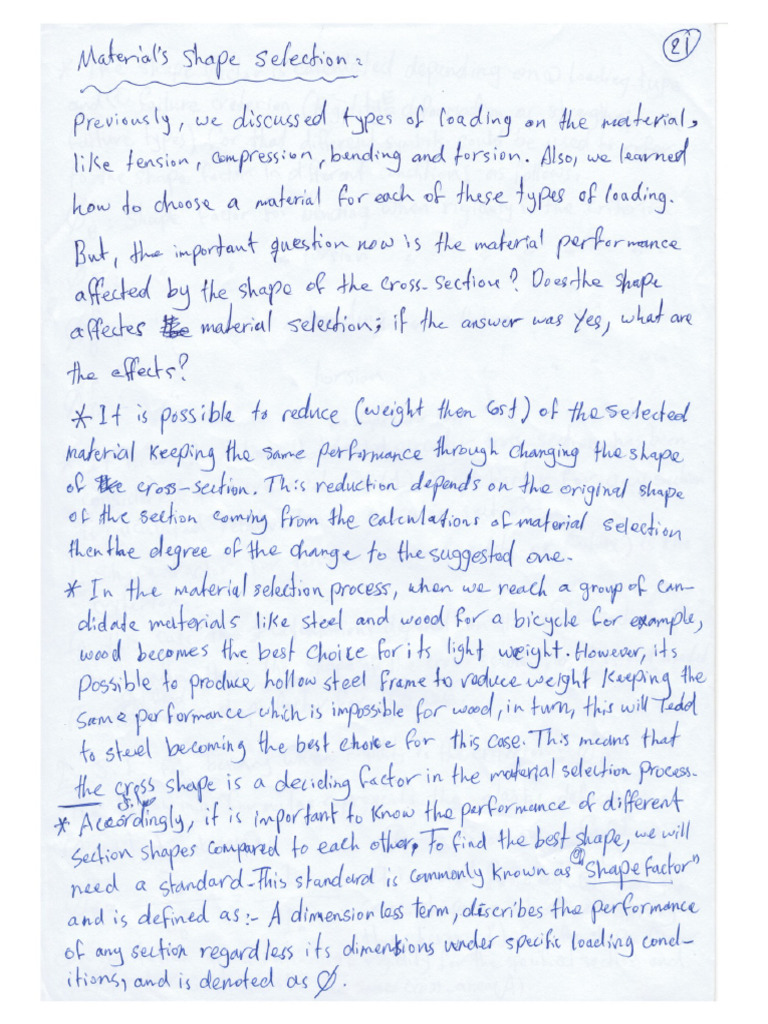 21
Material's shape selection:
Previously, we discussed types of loading on the material,
like tension, compression, bending and torsion. Also, we learned
how to choose a material for each of these types of loading.
But, the important question now is the material performance
affected by the shape of the cross-section? Does the shape
affectes the material selection; if the answer was yes, what are
the effects?
* It is possible to reduce (weight then cost) of the selected
material keeping the same performance through changing the shape
of the cross-section. This reduction depends on the original shape
of the section coming from the calculations of material selection
then the degree of the change to the suggested one.
* In the material selection process, when we reach a group of can-
didate materials like steel and wood for a bicycle for example,
wood becomes the best choice for its light weight. However, its
possible to produce hollow steel frame to reduce weight keeping the
same performance which is impossible for wood, in turn, this will
to steel becoming the best choice for this case. This means that
the cross shape is a deciding factor in the material selection process.
* Accordingly, it is important to know the performance of different
section shapes compared to each other. To find the best shape, we will
need a standard. This standard is commonly known as "Shape factor"
and is defined as:- A dimensionless term, describes the performance
of any section regardless its dimensions under specific loading cond-
itions, and is denoted as Ø.